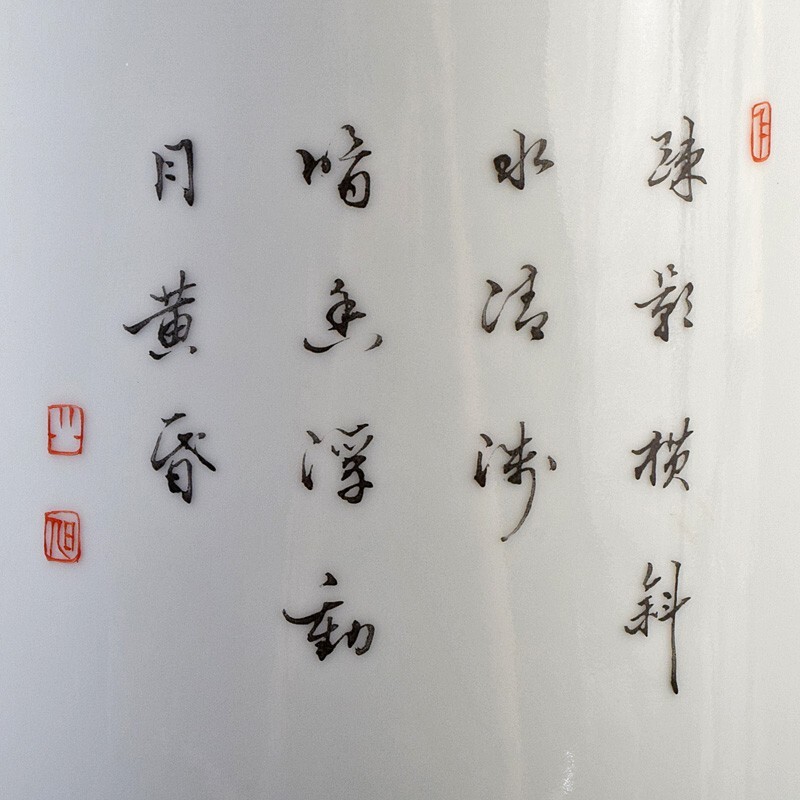 疎影横斜
水清浅
暗香浮動
月黄昏
旭